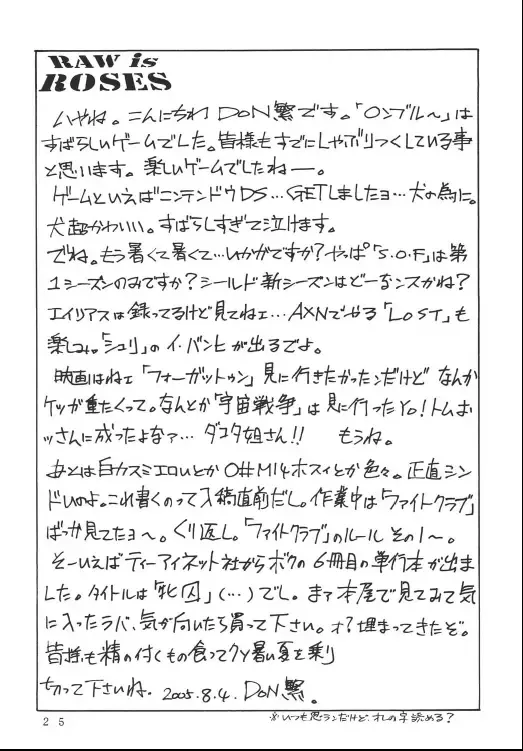 RAW is
ROSES
いやね。こんにちわ DoN繁です。「ロンブル〜」は
すばらしいゲームでした。皆様もすでにしゃぶりつくしている事
と思います。楽しいゲームでしたねー。
ゲームといえばニンテンドウDS…GETしましたヨ…犬の為に。
犬超かわいい。すばらしすぎて泣けます。
でね。もう暑くて暑くて…いかがですか?やっぱ「S.O.F」は第
1シーズンのみですか?シールド新シーズンはどーなンスかね?
エイリアスは録ってるけど見てねェ…AXNでやる「LoST」も
楽しみ。「シュリ」のイ・バンヒが出るでよ。
映画はねェ「フォーガットゥン」見に行きたかったンだけど なんか
ケツが重たくって。なんとか「宇宙戦争」は見に行ったYo!トムお
ッさんに成ったよなァ… ダコタ姐さん!! もうね。
あとは白カスミエロいとか O#M14ホスィとか色々。正直シン
ドいのよ。これ書くのって入稿直前だし。作業中は「ファイトクラブ」
ばっか見てたヨ〜。くり返し。「ファイトクラブ」のルール その1〜。
そーいえばティーアイネット社からボクの6冊目の単行本が出ま
した。タイトルは「牝囚」(…)でし。まァ本屋で見てみて気
に入ったラバ、気が向いたら買って下さい。オ?埋まってきたぞ。
皆様も精の付くもの食ってクソ暑い夏を乗り
切って下さいね. 2005.8.4. DoN繁。
25
※いつも思ランだけど、オレの字読める?